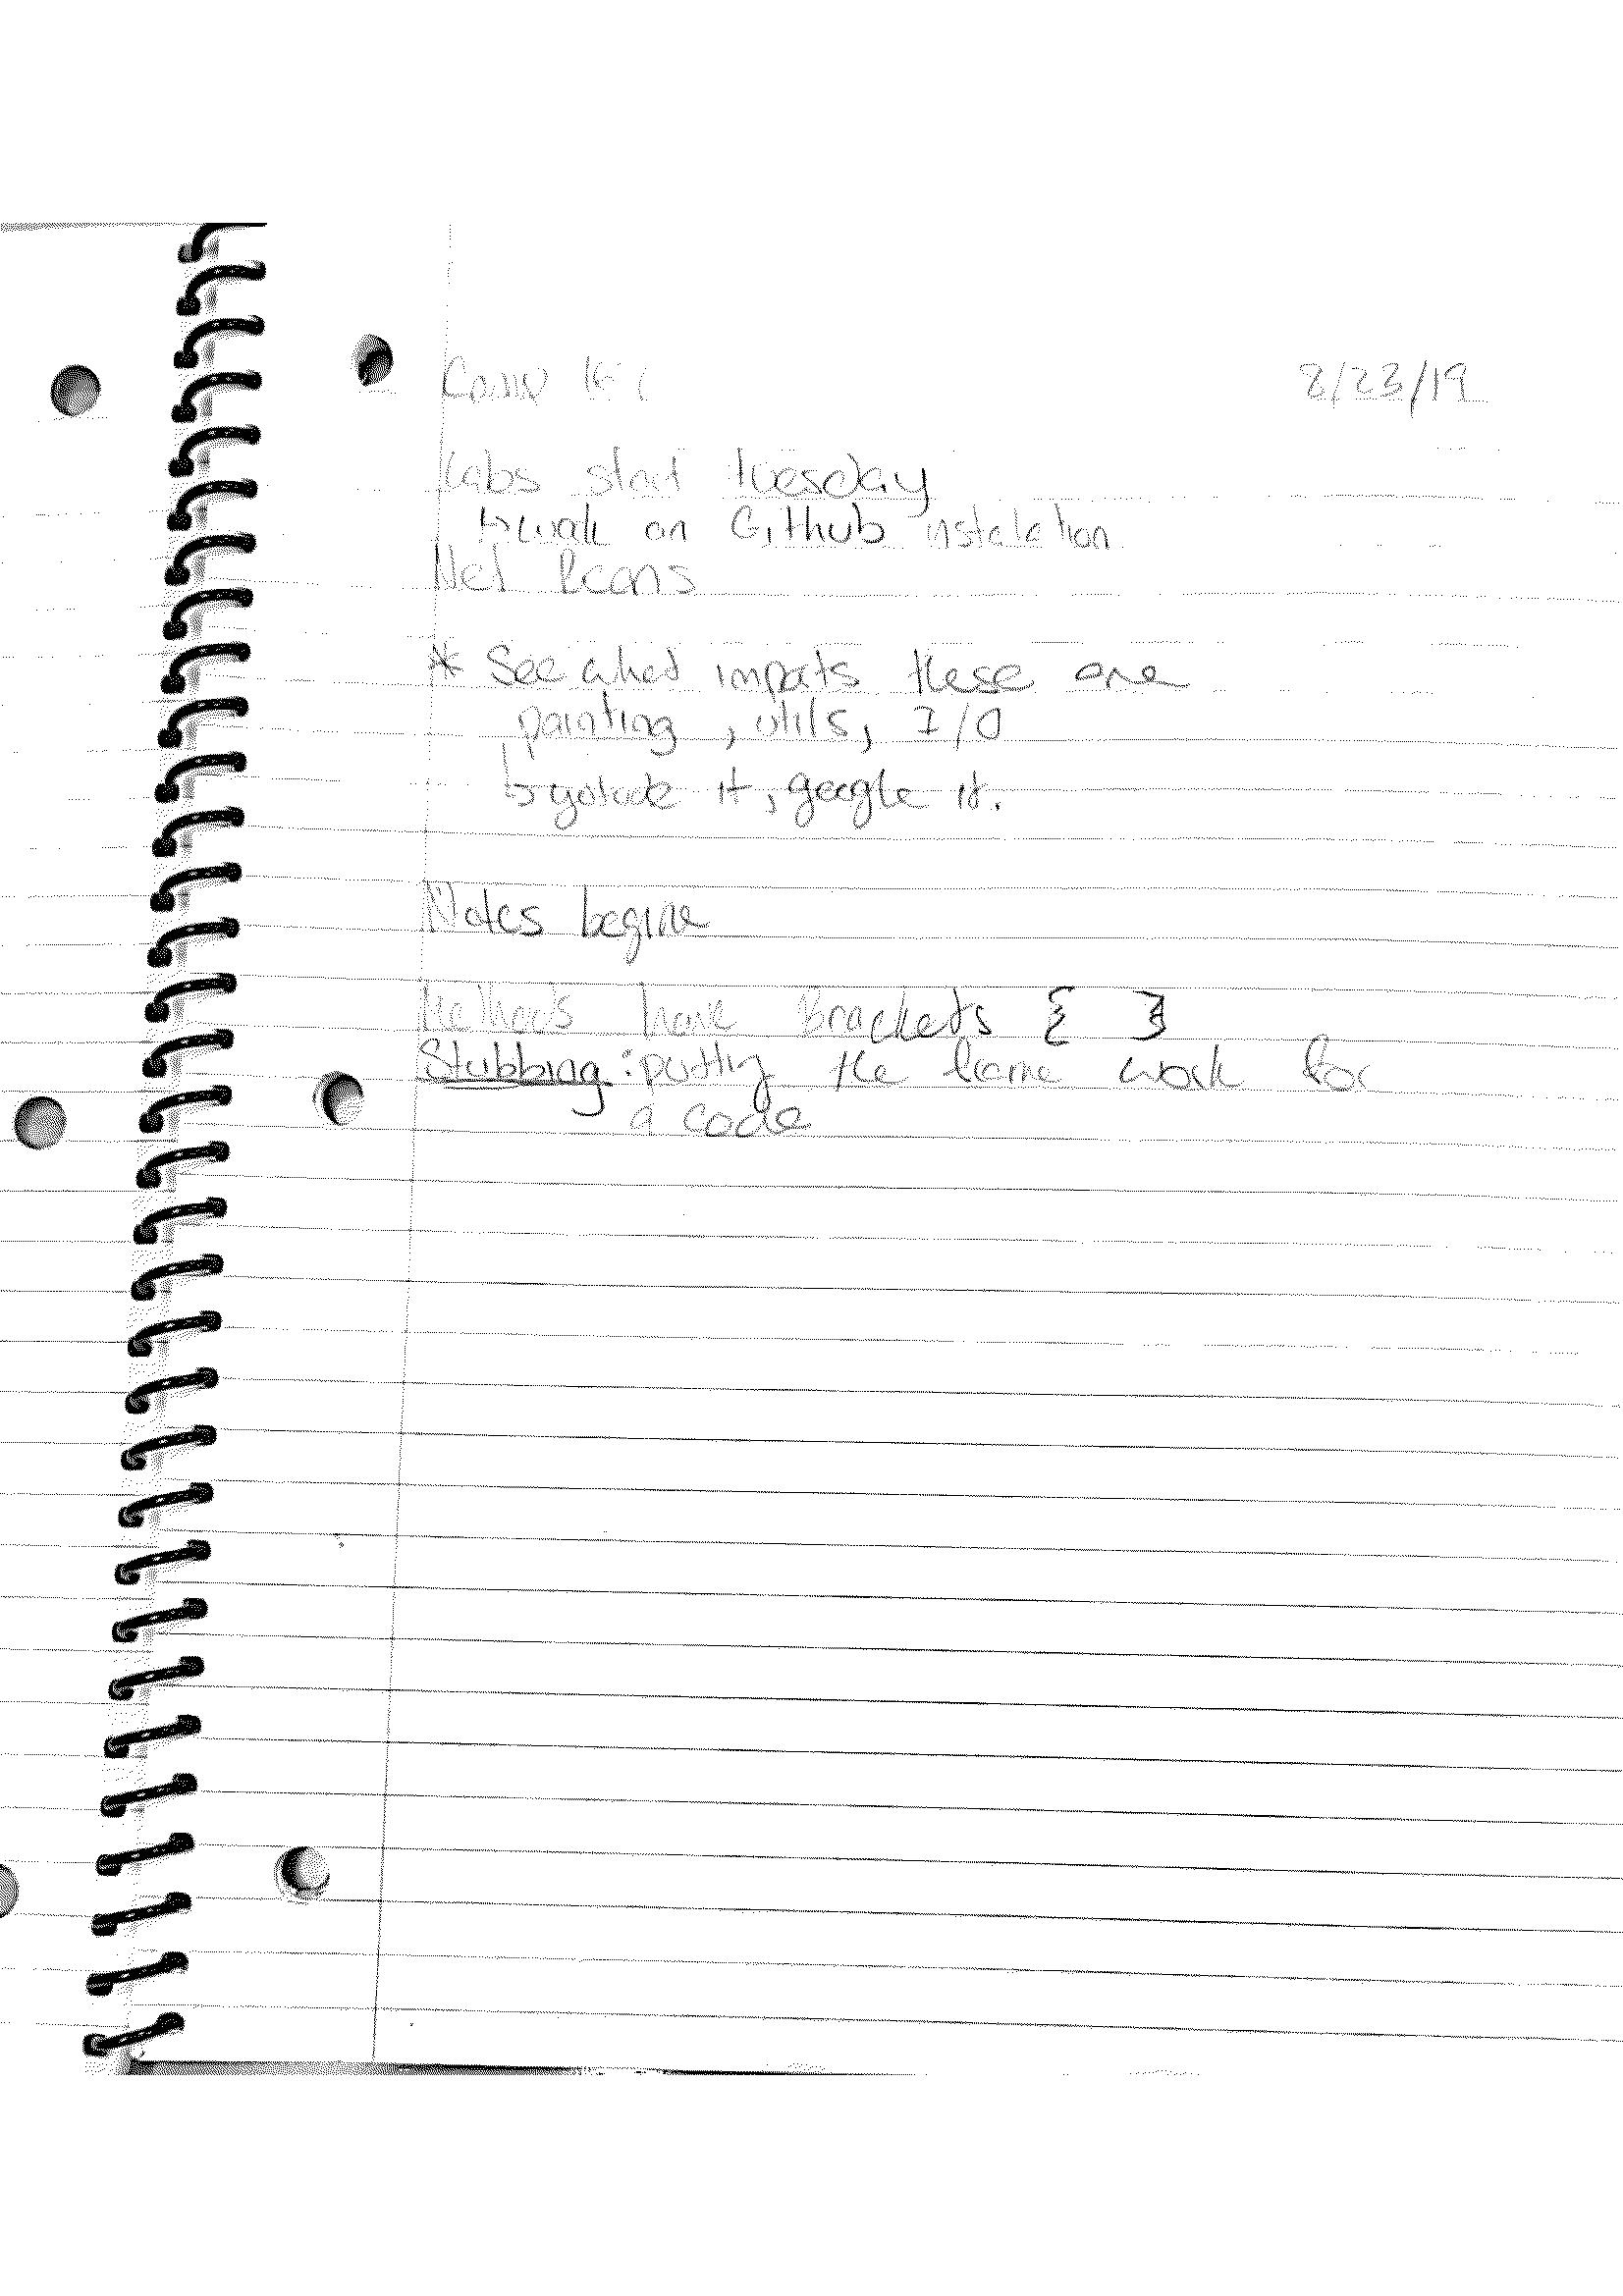 Comp 8/23/19
Labs start tuesday
↳ work on Github instalation
Net Beans
* See what imports these are
painting, utils, I/O
↳ youtube it, google it.
Notes begine
Methods have Brackets { }
Stubbing: putting the frame work for
a code